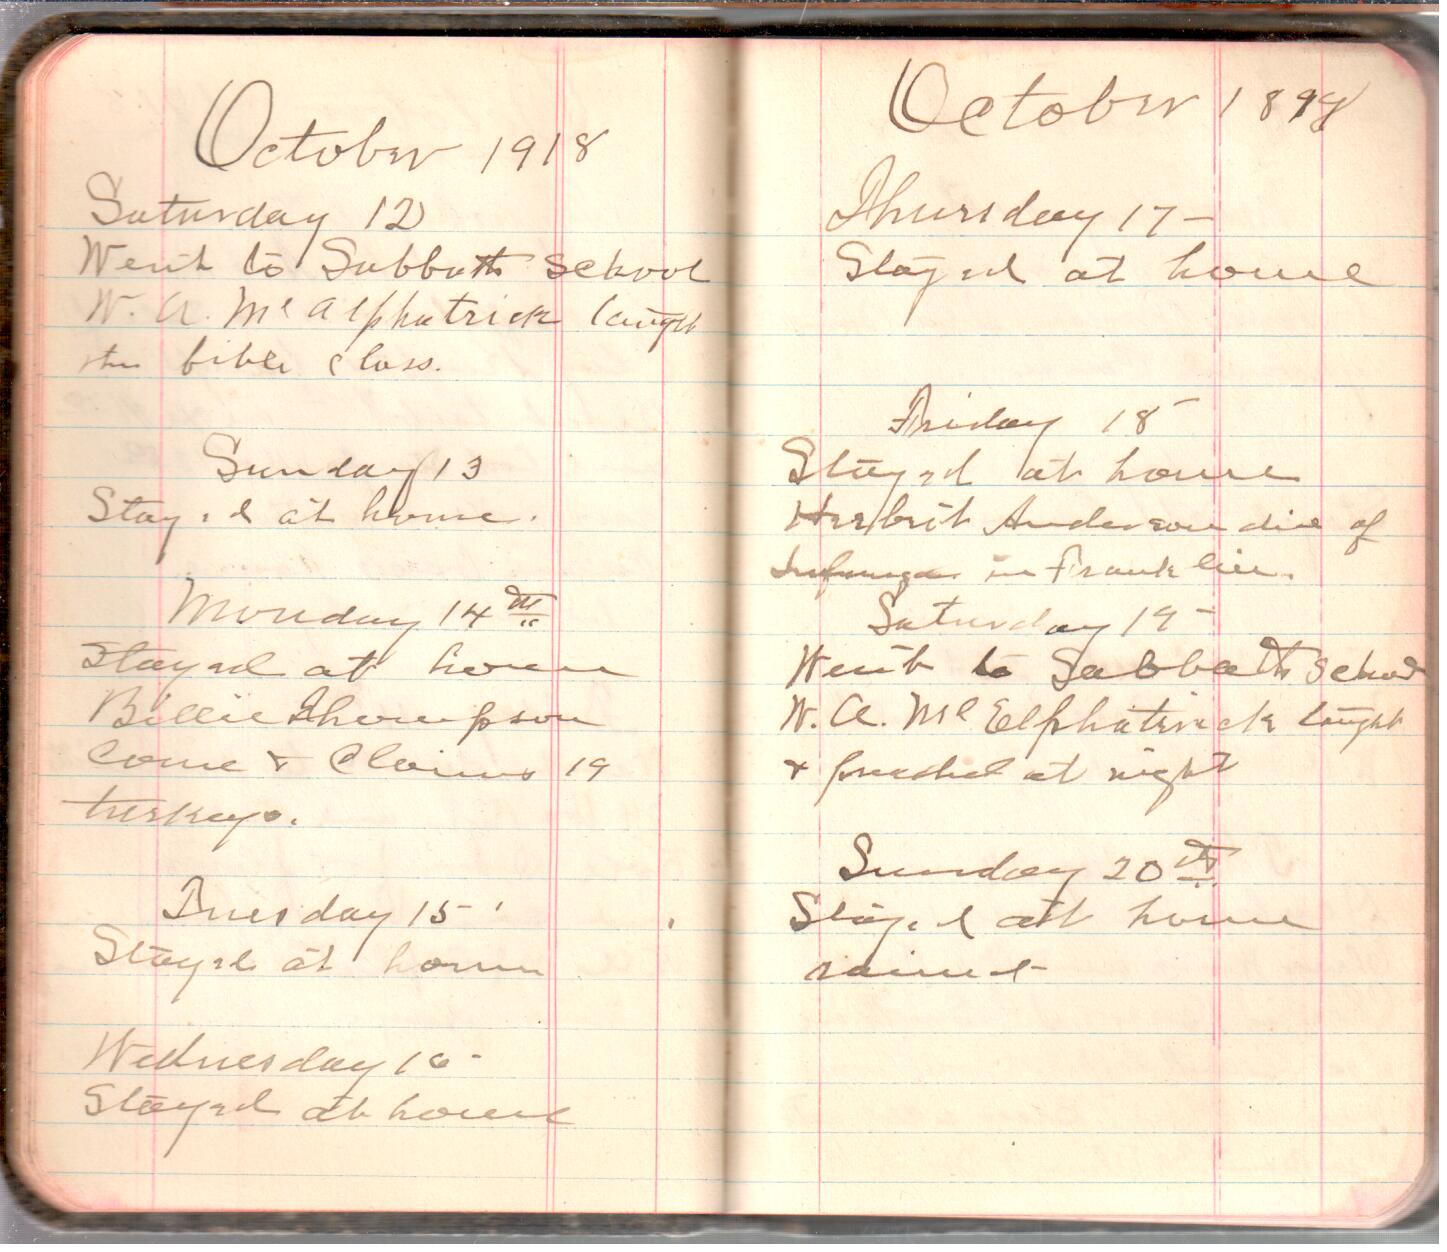 October 1918
Saturday 12
Went to Sabbath School
W. A. Mc Alphatrick taught
the bible class.
Sunday 13
Stayed at home.
Monday 14th
Stayed at home
Billie Thompson
come & Claims 19
turkeys.
Tuesday 15
Stayed at home
Wednesday 16-
Stayed at home
October 18
Thursday 17-
Stayed at home
Friday 18-
Stayed at home
Herbert Anderson die of
in Franklin.
Saturday 19-
Went to Sabbath School
W. A. Mc Elphatrick taught
& preached at night
Sunday 20th
Stayed at home
rained